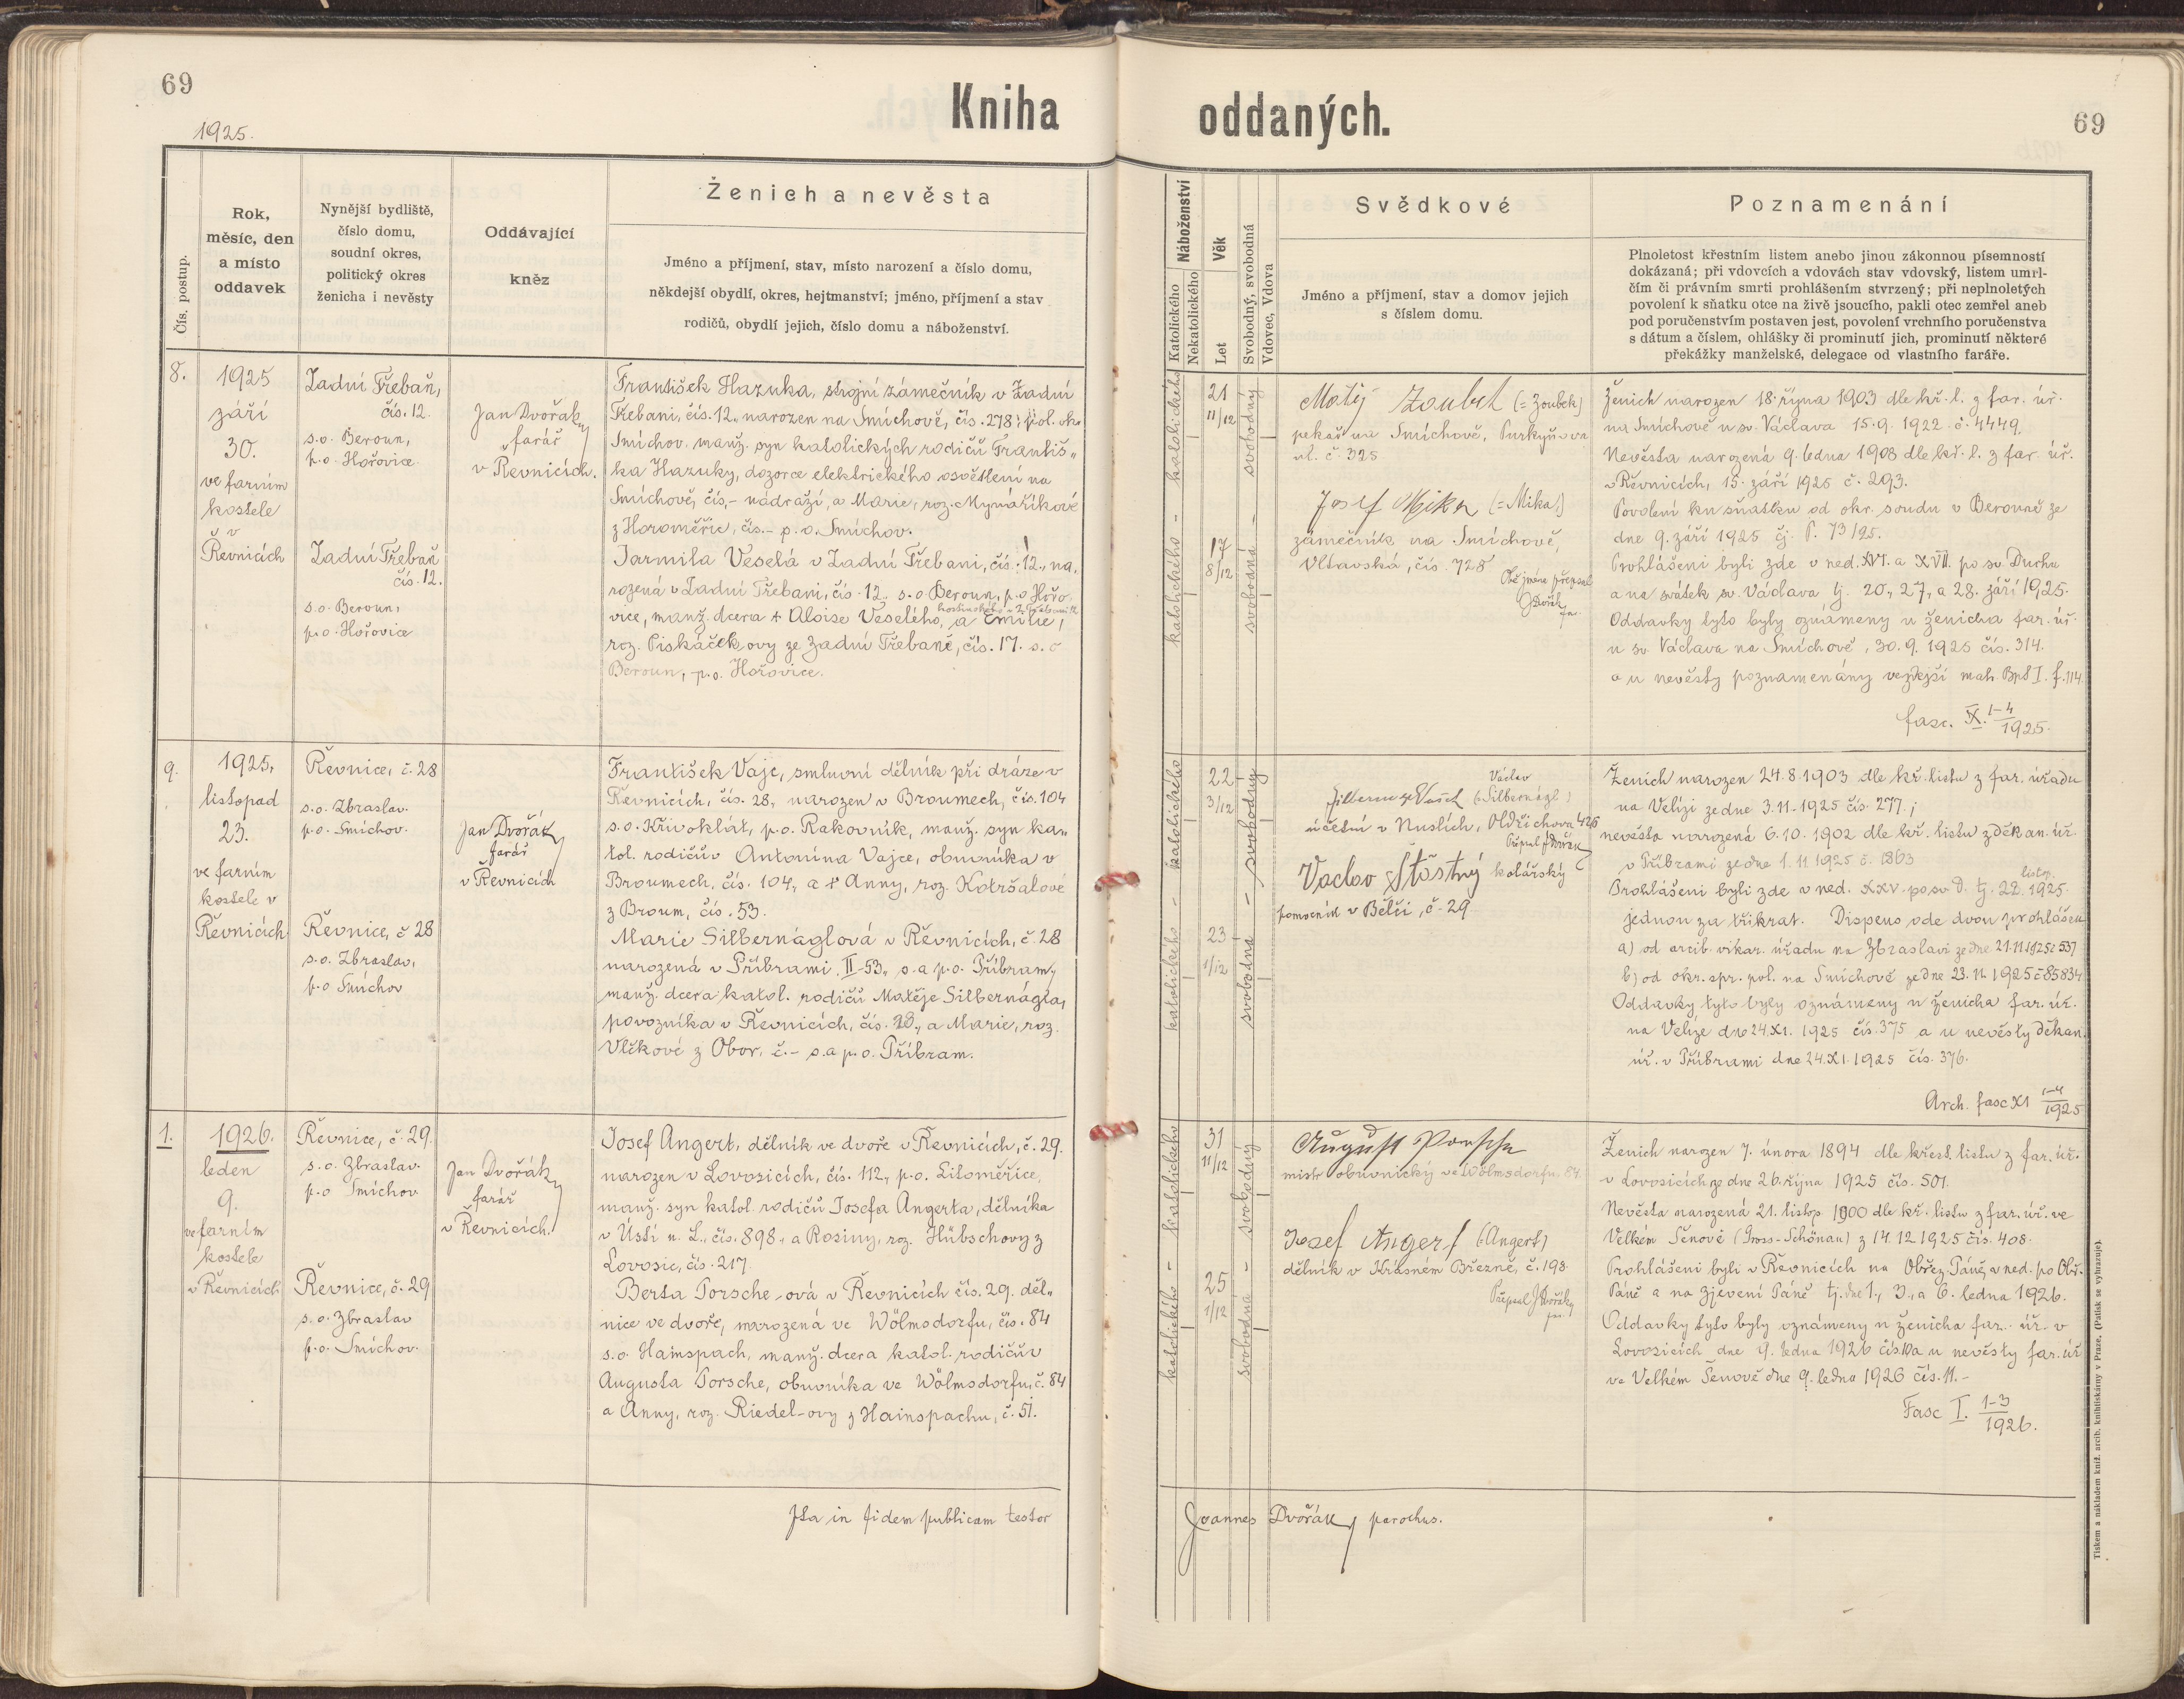 69
1925.
Kniha
oddaných.
69
Čís. postup.
Rok,
měsíc, den
a místo
oddavek
Nynější bydliště,
číslo domu,
soudní okres,
politický okres
ženicha i nevěsty
Oddávající
kněz
Ženich a nevěsta
Jméno a příjmení, stav, místo narození a číslo domu,
někdejší obydlí, okres, hejtmanství; jméno, příjmení a stav
rodičů, obydlí jejich, číslo domu a náboženství.
Náboženství
Katolického
Nekatolického
Věk
Let
Svobodný, svobodná
Vdovec, Vdova
Svědkové
Jméno a příjmení, stav a domov jejich
s číslem domu.
Poznamenání
Plnoletost křestním listem anebo jinou zákonnou písemností
dokázaná; při vdovcích a vdovách stav vdovský, listem umrl-
čím či právním smrti prohlášením stvrzený; při neplnoletých
povolení k sňatku otce na živě jsoucího, pakli otec zemřel aneb
pod poručenstvím postaven jest, povolení vrchního poručenstva
s dátum a číslem, ohlášky či prominutí jich, prominutí některé
překážky manželské, delegace od vlastního faráře.
8.
1925
září
30.
ve farním
kostele
v
Řevnicích
Zadní Třebaň,
čís. 12.
s.o. Beroun,
p.o. Hořovice
Zadní Třebaň
čís. 12.
s.o. Beroun,
p.o. Hořovice
Jan Dvořák
farář
v Řevnicích.
František Hazuka, strojní zámečník v Zadní
Třebani, čís. 12., narozen na Smíchově, čís. 278; pol. okr.
Smíchov. manž. syn katolických rodičů Františ„
ka Hazuky, dozorce elektrického osvětlení na
Smíchově, čís,- nádraží, a Marie, roz. Mynaříkové
z Horoměřic, čís.- p.o. Smíchov.
Jarmila Veselá v Zadní Třebani, čís. 12., na„
rozená v Zadní Třebani, čís. 12., s.o. Beroun, p.o. Hořo„
vice, manž. dcera + Aloise Veselého, a Emilie,
roz. Piskáčkovy ze Zadní Třebaně, čís. 17. s.o
Beroun, p.o. Hořovice.
katolického - katolického -
21
11/12
17
8/12
svobodný
svobodná -
Matěj Zoubek (= Zoubek)
pekař na Smíchově, Purkyňova
ul. č. 325
Josef Mika (= Mika)
zámečník na Smíchově,
Vltavská, čís. 728
Obě jména přepsal
JDvořák
far.
Ženich narozen 18. října 1903 dle kř. l. z far. úř.
na Smíchově u sv. Václava 15.9. 1922. č. 4449.
Nevěsta narozená 9. ledna 1908 dle kř. l. z far. úř.
v Řevnicích, 15. září 1925 č. 293.
Povolení ku sňatku od okr. soudu v Berouně ze
dne 9. září 1925 čj. P. 73/25.
Prohlášeni byli zde v ned. XVI. a XVII. po sv. Duchu
a na svátek sv. Václava tj. 20., 27., a 28. září 1925.
Oddavky tyto byly oznámeny u ženicha far. úř.
u sv. Václava na Smíchově, 30. 9. 1925 čís. 314.
a u nevěsty poznamenány ve zdejší matr. Bpt I. f. 114.
fasc. IX. 1-4/1925.
9.
1925,
listopad
23.
ve farním
kostele v
Řevnicích
Řevnice, č. 28
s.o. Zbraslav.
p.o. Smíchov.
Řevnice, č 28
s.o. Zbraslav,
p.o Smíchov
Jan Dvořák
farář
v Řevnicích
František Vajc, smluvní dělník při dráze v
Řevnicích, čís. 28., narozen v Broumech, čís. 104
s.o. Křivoklát, p.o. Rakovník, manž. syn ka„
tol. rodičův Antonína Vajce, obuvníka v
Broumech, čís. 104., a + Anny, roz. Kotršalové
z Broum, čís. 53.
Marie Silbernáglová v Řevnicích, č. 28
narozená v Příbrami II-53., s. a p.o. Příbram,
manž. dcera katol. rodičů Matěje Silbernágla,
povozníka v Řevnicích, čís. 28., a Marie, roz.
Vlčkové z Obor, č.- s. a p.o. Příbram.
katolického - katolického
22
3/12
23
1/12
svobodný -
svobodná -
Václav
(= Silbernágl)
účetní v Nuslích, Oldřichova 426
Přepsal JDvořák
Vaclav Šťóstný kolářský
pomocník v Bělči, č. 29
Ženich narozen 24.8.1903 dle kř. listu z far. úřadu
na Velízi ze dne 3.11.1925 čís. 277.;
nevěsta narozená 6.10.1902 dle kř. listu z děkan. úř.
v Příbrami ze dne 1.11 1925 č. 1863
Prohlášeni byli zde v ned. XXV. po sv. D. tj. 22. listop. 1925.
jednou za třikrát. Dispens ode dvou prohlášek
a) od arcib. vikar. úřadu na Zbraslavi ze dne 21.11.1925 č 537
b) od okr. spr. pol. na Smíchově ze dne 23.11. 1925 č 85834
Oddavky tyto byly oznámeny u ženicha far. úř.
na Velíze dne 24.XI. 1925 čís. 375 a u nevěsty děkan.
úř. v Příbrami dne 24.XI.1925 čís. 376.
Arch. fasc XI 1-4/1925
1.
1926.
leden
9.
ve farním
kostele
v Řevnicích
Řevnice, č. 29.
s.o. Zbraslav.
p.o Smíchov
Řevnice, č. 29
s.o. Zbraslav
p.o. Smíchov.
Jan Dvořák
farář
v Řevnicích.
Josef Angert, dělník ve dvoře v Řevnicích, č. 29.
narozen v Lovosicích, čís. 112., p.o. Litoměřice,
manž. syn katol. rodičů Josefa Angerta, dělníka
v Ústí n. L., čís. 898., a Rosiny, roz. Hübschovy z
Lovosic, čís. 217.
Berta Porsche-ová v Řevnicích čís. 29. děl„
nice ve dvoře, narozená ve Wölmsdorfu, čís. 84
s.o. Hainspach, manž. dcera katol. rodičův
Augusta Porsche, obuvníka ve Wölmsdorfu, č. 84
a Anny, roz. Riedel-ovy z Hainspachu, č. 51.
katolického - katolického
31
11/12
25
1/12
svobodný -
svobodná -
August Porsche
mistr obuvnický ve Wölmsdorfu 84.
Josef Angert (Angert)
dělník v Krásném Březně, č. 198.
Přepsal JDvořák
far.
Ženich narozen 7. února 1894 dle křest. listu z far. úř.
v Lovosicích ze dne 26. října 1925 čís. 501.
Nevěsta narozená 21. listop. 1900 dle kř. listu z far. úř. ve
Velkém Šenově (Gross-Schönau) z 14.12.1925 čís. 408.
Prohlášeni byli v Řevnicích na Obřez. Páně, v ned. po Obř.
Páně a na zjevení Páně tj. dne 1., 3., a 6. ledna 1926.
Oddavky tyto byly oznámeny u ženicha far. úř. v
Lovosicích dne 9. ledna 1926 a u nevěsty far. úř
ve Velkém Šenově dne 9. ledna 1926 čís. 11.-
Fasc I. 1-3/1926.
Ita in fidem publicam testor
Joannes Dvořák parochus.
Tiskem a nákladem kníž. arcib. knihtiskárny v Praze. (Patisk se vyhrazuje).